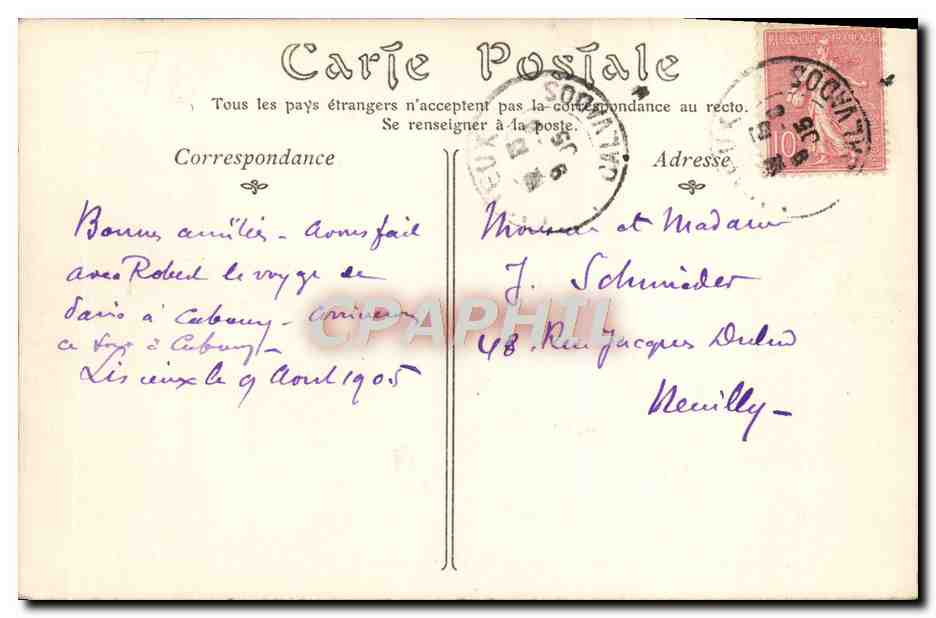 Carte Postale
Tous les pays étrangers n'acceptent pas la correspondance au recto.
Se renseigner à la poste.
Correspondance
Adresse
REPUBLIQUE FRANÇAISE
10
CALVADOS
CALVADOS
Bonnes amitiés - Avons fait
avec Robert le voyage de
Paris à Cabourg - arriverons
ce soir à Cabourg -
Lisieux le 9 Août 1905
Monsieur et Madame
J. Schmieder
48, Rue Jacques Dulud
Neuilly -
CPAPHIL